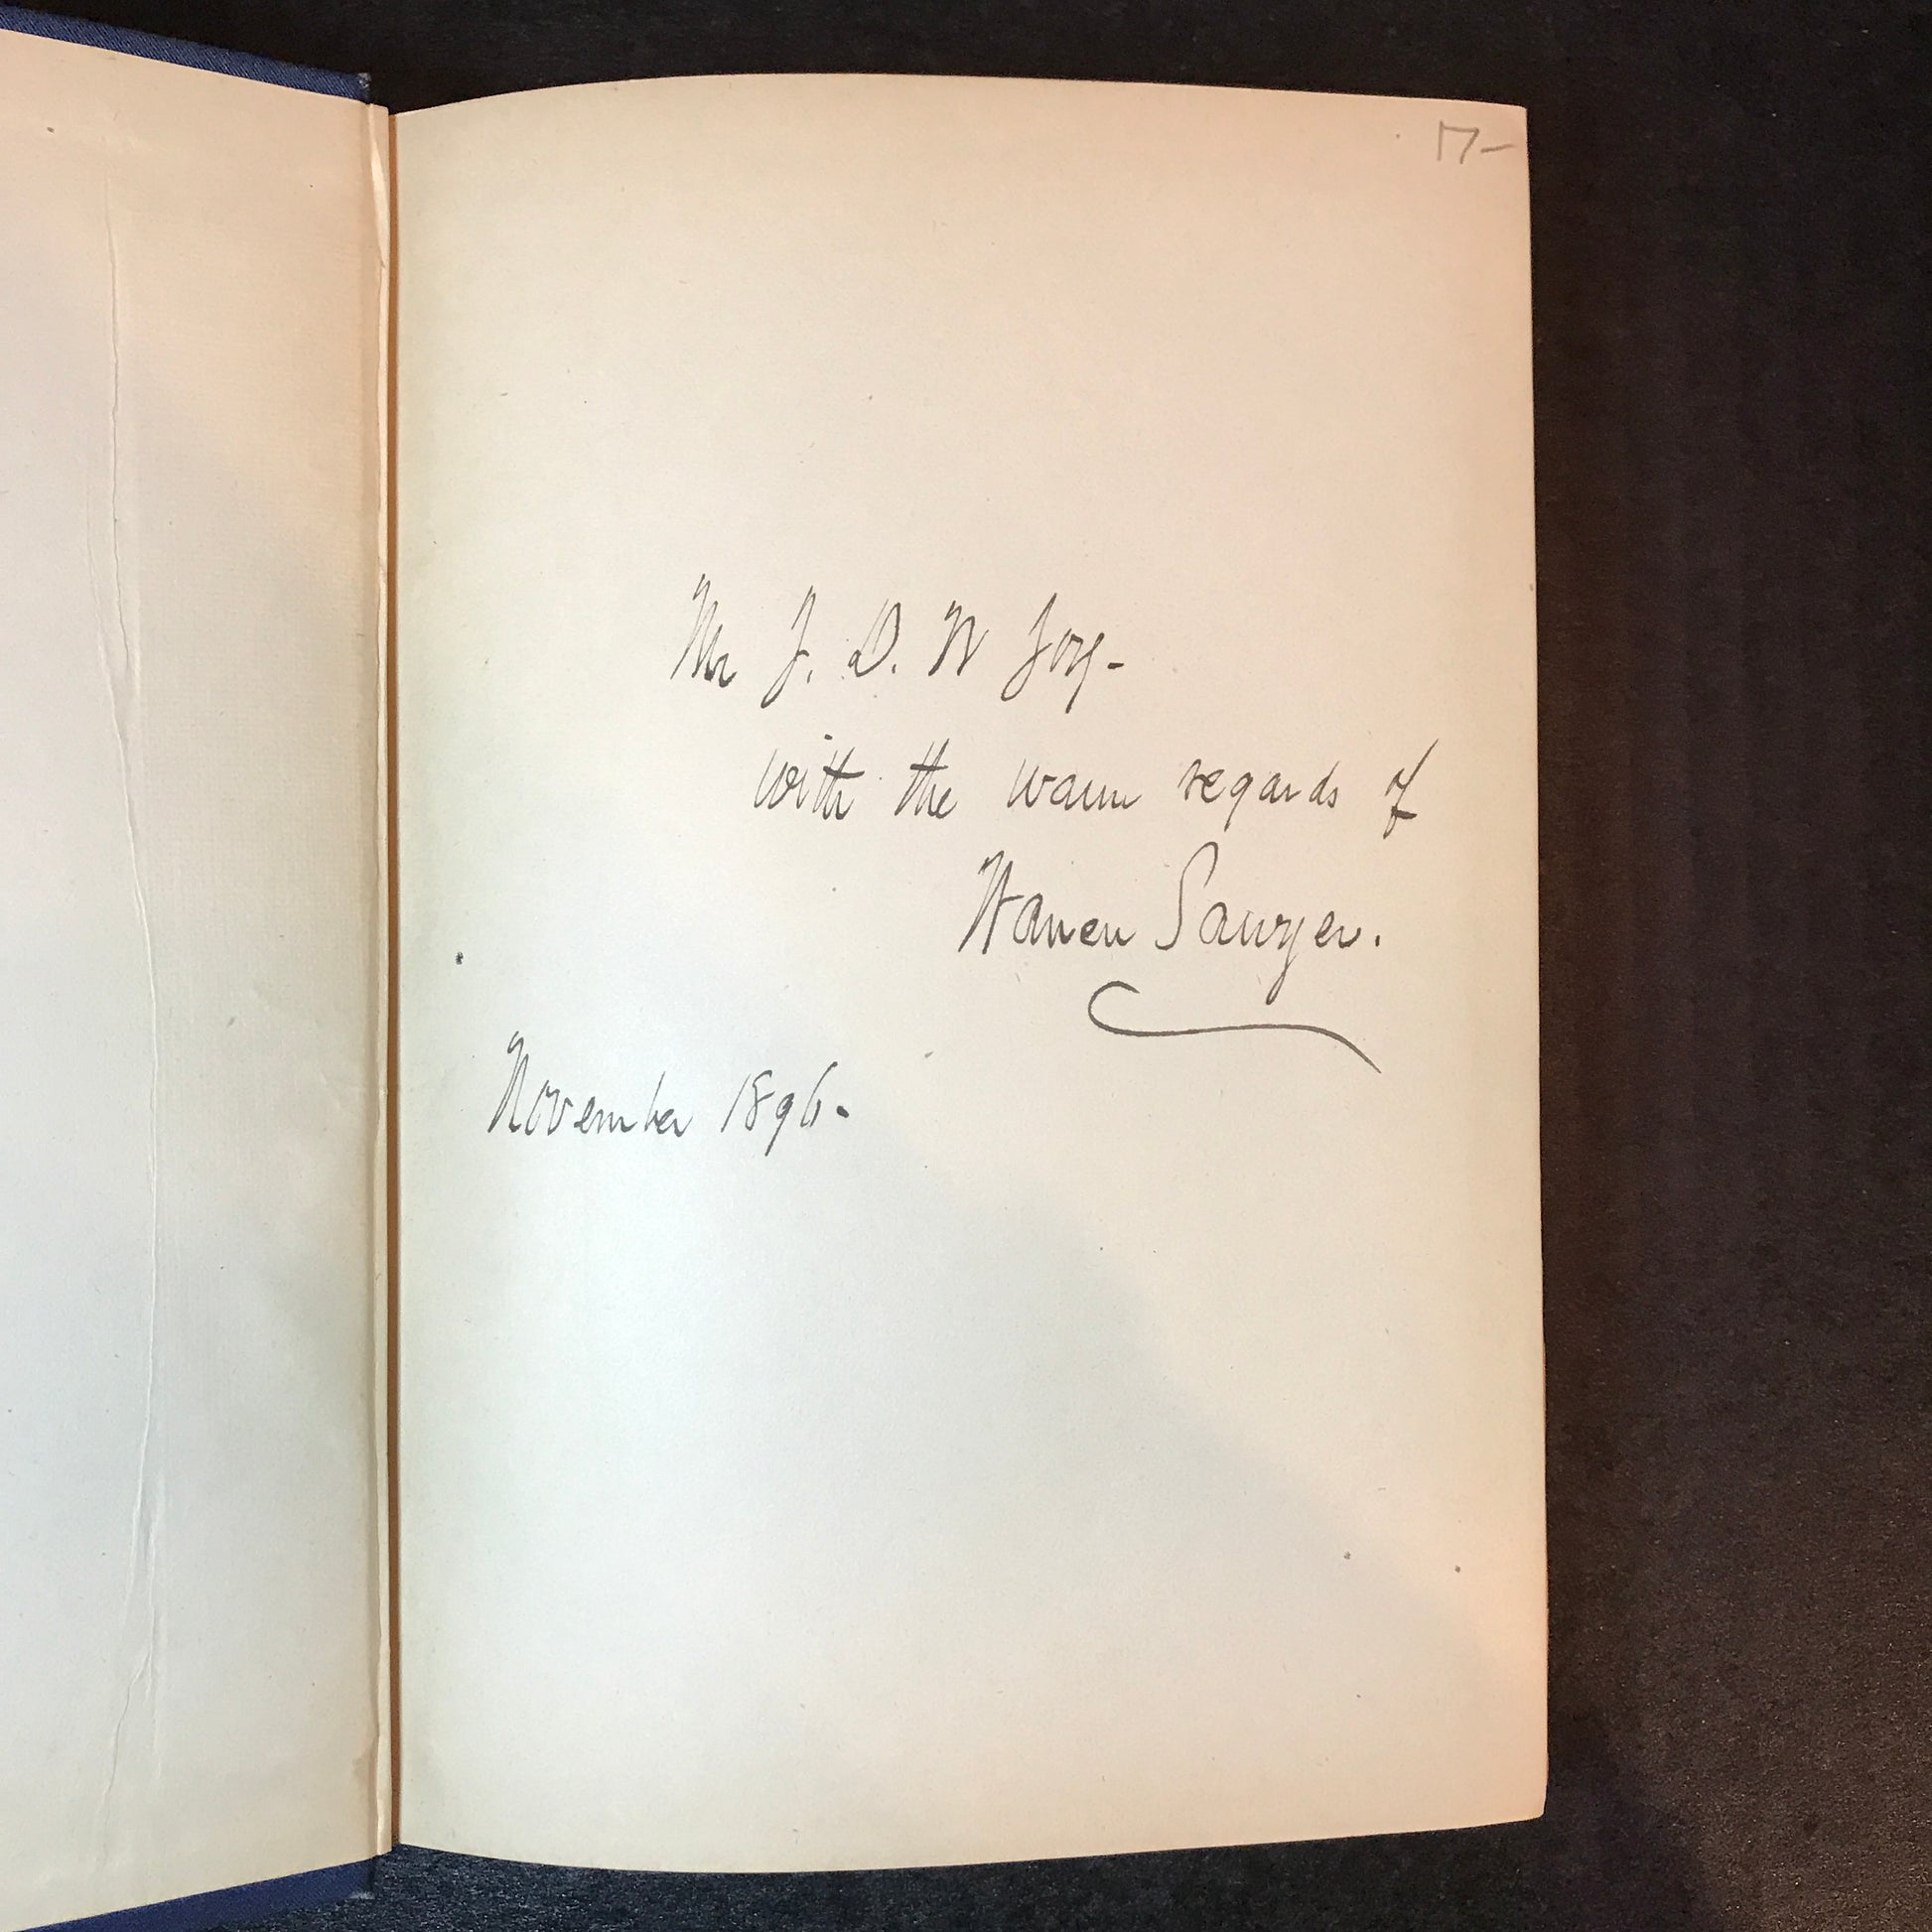 17-
Mr J. D. W Joy-
with the warm regards of
Warren Sawyer.
November 1896-